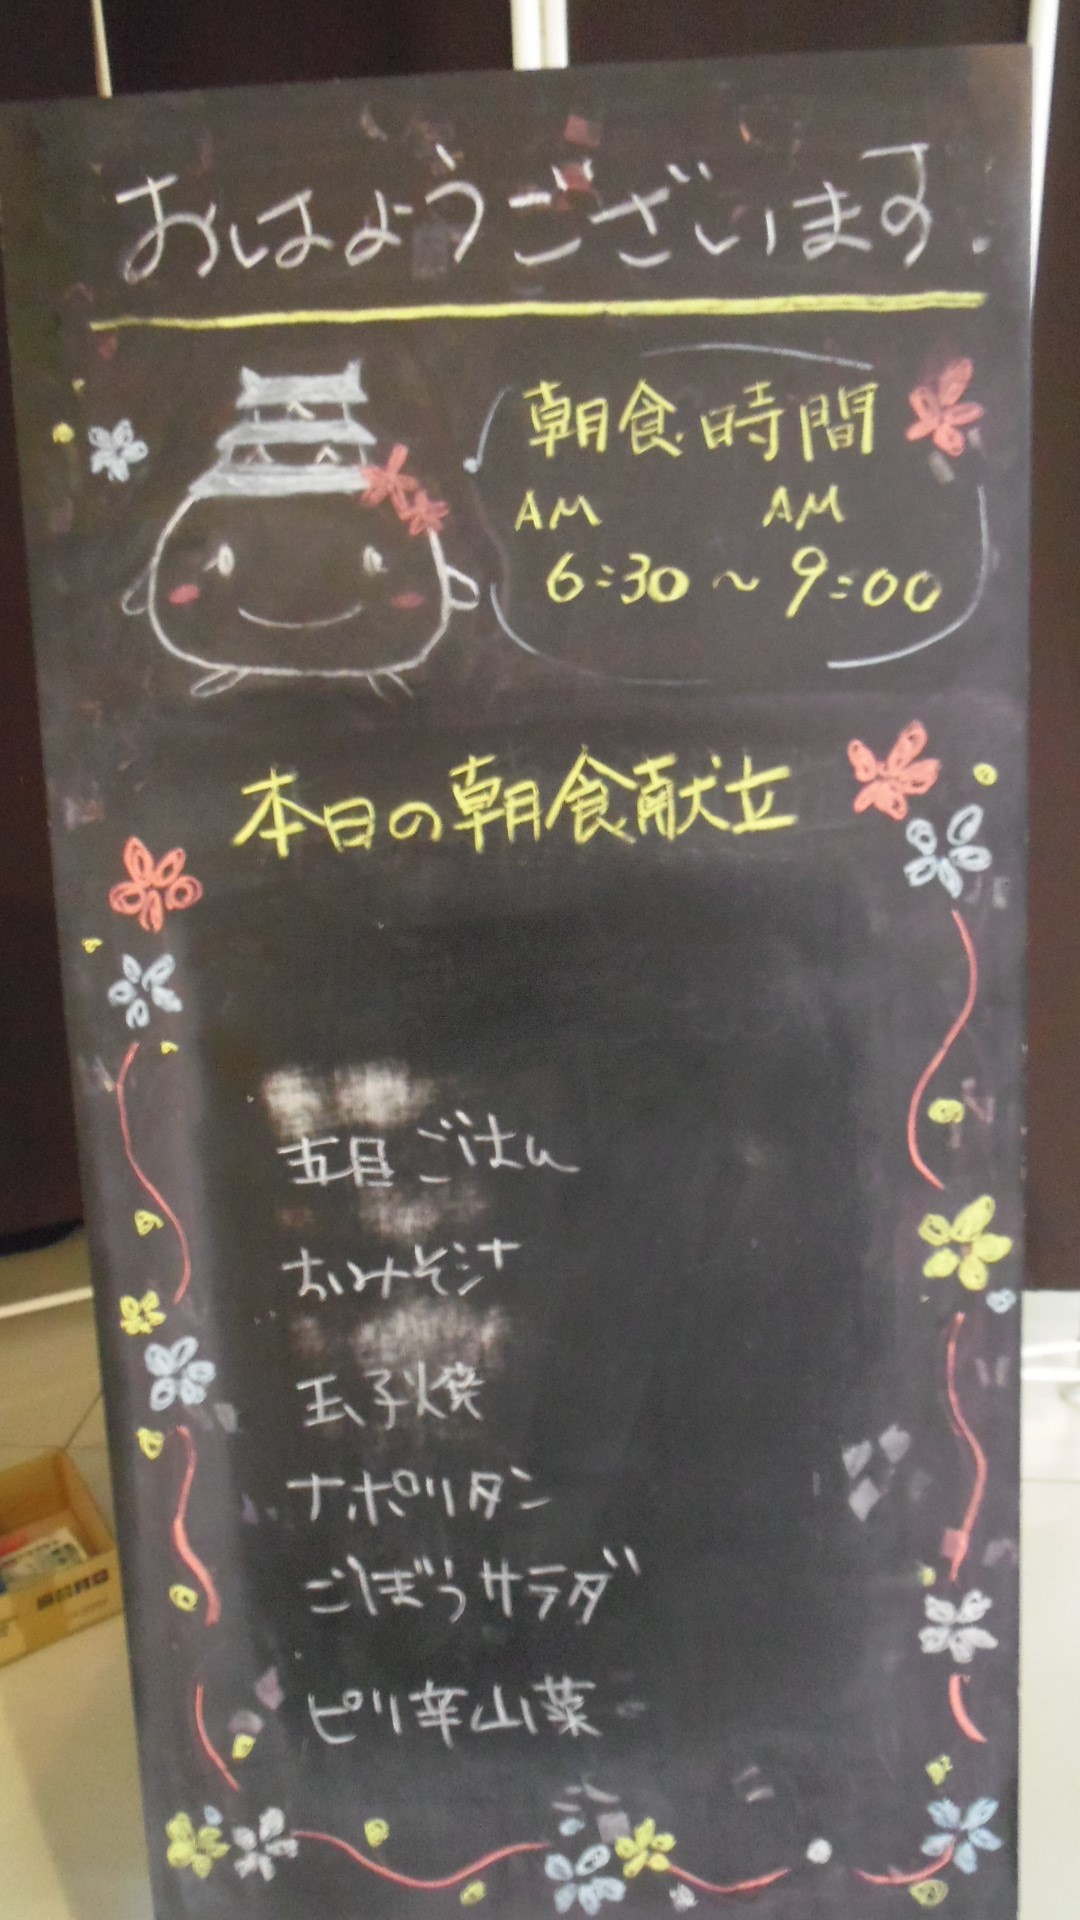 おはようございます.
朝食時間
AM AM
6:30 〜 9:00
本日の朝食献立
五目ごはん
おみそ汁
玉子焼
ナポリタン
ごぼうサラダ
ピリ辛山菜